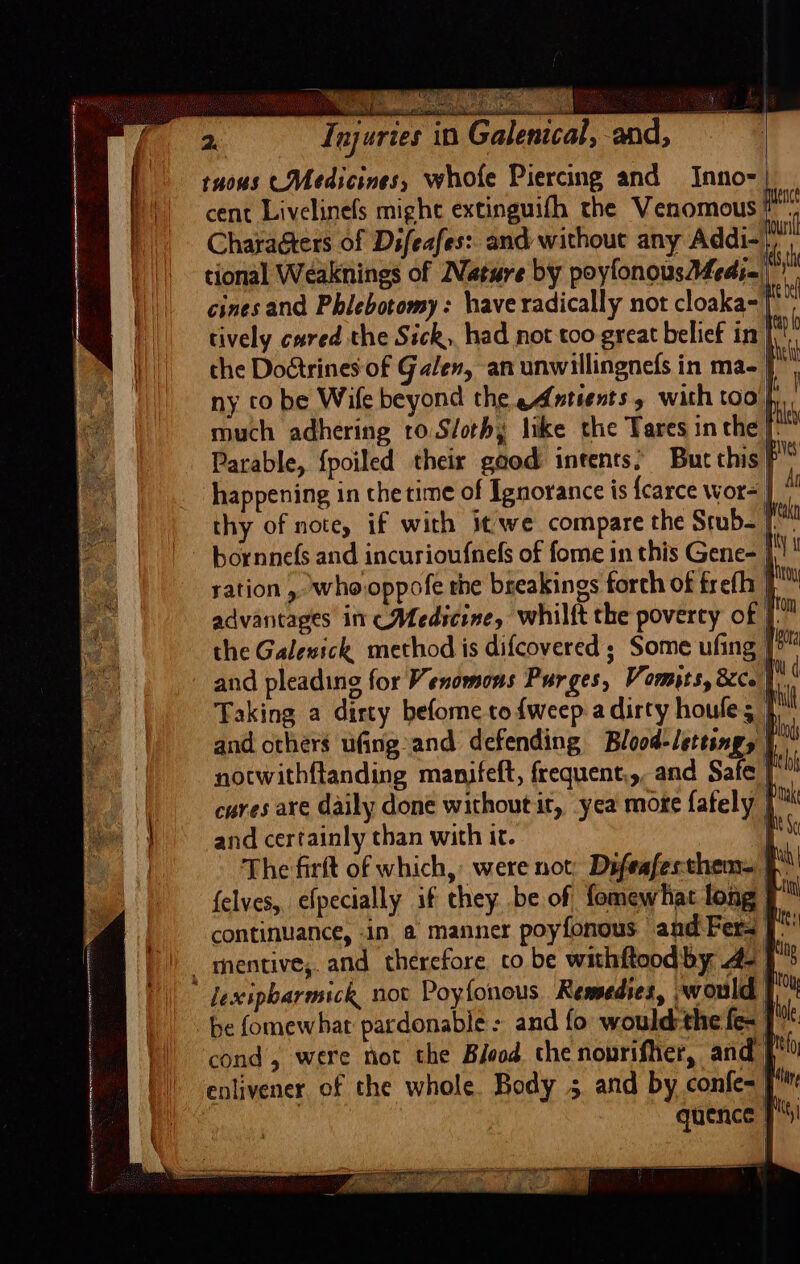 2 Injuries in Galenical, and,
tuous Medicines, whoſe Piercing and Inno-
cent Livelineſs might extinguiſh the Venomous
Characters of Diſeaſes: and without any Addi-
tional Weaknings of Nature by poyſonous Medi-
cines and Phlebotomy: have radically not cloaka-
tively cured the Sick, had not too great belief in
the Doctrines of Galen, an unwillingneſs in ma-
ny to be Wiſe beyond the Antients, with too
much adhering to Sloth; like the Tares in the
Parable, ſpoiled their good intents: But this
happening in the time of Ignorance is ſcarce wor-
thy of note, if with it we compare the Stub-
bornneſs and incuriouſneſs of ſome in this Gene-
ration, who oppoſe the breakings forth of freſh
advantages in Medicine, whilſt the poverty of
the Galenick method is diſcovered; Some uſing
and pleading for Venomous Purges, Vomits, &c.
Taking a dirty beſome to ſweep a dirty houſe;
and others uſing and defending Blood-lettings,
notwithſtanding manifeſt, frequent, and Safe
cures are daily done without it, yea more ſafely
and certainly than with it.
The firſt of which, were not Diſeaſes them-
ſelves, eſpecially if they be of ſomewhat long
continuance, in a manner poyſonous and Fer-
mentive, and therefore to be withſtood by A-
lexipharmick not Poyſonous Remedies, would
be ſomewhat pardonable: and ſo would the ſe-
cond, were not the Blood the nouriſher, and
enlivener of the whole Body; and by conſe-
quence